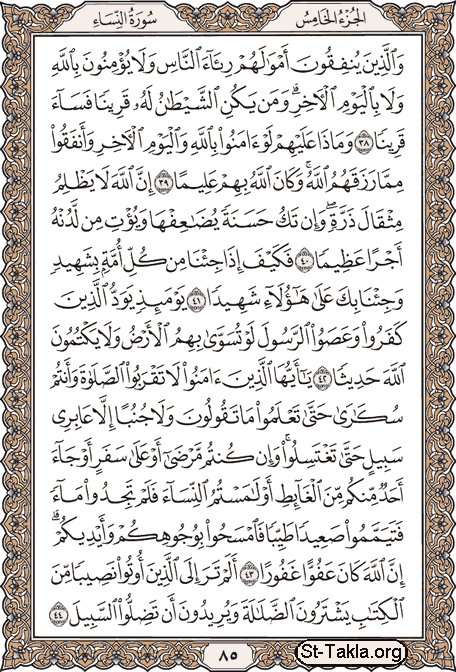 الجزء الخامس
سورة النساء
وَٱلَّذِينَ يُنفِقُونَ أَمۡوَٰلَهُمۡ رِئَآءَ ٱلنَّاسِ وَلَا يُؤۡمِنُونَ بِٱللَّهِ
وَلَا بِٱلۡيَوۡمِ ٱلۡأٓخِرِۗ وَمَن يَكُنِ ٱلشَّيۡطَٰنُ لَهُۥ قَرِينٗا فَسَآءَ
قَرِينٗا ٣٨ وَمَاذَا عَلَيۡهِمۡ لَوۡ ءَامَنُواْ بِٱللَّهِ وَٱلۡيَوۡمِ ٱلۡأٓخِرِ وَأَنفَقُواْ
مِمَّا رَزَقَهُمُ ٱللَّهُۚ وَكَانَ ٱللَّهُ بِهِمۡ عَلِيمًا ٣٩ إِنَّ ٱللَّهَ لَا يَظۡلِمُ
مِثۡقَالَ ذَرَّةٖۖ وَإِن تَكُ حَسَنَةٗ يُضَٰعِفۡهَا وَيُؤۡتِ مِن لَّدُنۡهُ
أَجۡرًا عَظِيمٗا ٤٠ فَكَيۡفَ إِذَا جِئۡنَا مِن كُلِّ أُمَّةِۭ بِشَهِيدٖ
وَجِئۡنَا بِكَ عَلَىٰ هَٰٓؤُلَآءِ شَهِيدٗا ٤١ يَوۡمَئِذٖ يَوَدُّ ٱلَّذِينَ
كَفَرُواْ وَعَصَوُاْ ٱلرَّسُولَ لَوۡ تُسَوَّىٰ بِهِمُ ٱلۡأَرۡضُ وَلَا يَكۡتُمُونَ
ٱللَّهَ حَدِيثٗا ٤٢ يَٰٓأَيُّهَا ٱلَّذِينَ ءَامَنُواْ لَا تَقۡرَبُواْ ٱلصَّلَوٰةَ وَأَنتُمۡ
سُكَٰرَىٰ حَتَّىٰ تَعۡلَمُواْ مَا تَقُولُونَ وَلَا جُنُبًا إِلَّا عَابِرِي
سَبِيلٍ حَتَّىٰ تَغۡتَسِلُواْۚ وَإِن كُنتُم مَّرۡضَىٰٓ أَوۡ عَلَىٰ سَفَرٍ أَوۡ جَآءَ
أَحَدٞ مِّنكُم مِّنَ ٱلۡغَآئِطِ أَوۡ لَٰمَسۡتُمُ ٱلنِّسَآءَ فَلَمۡ تَجِدُواْ مَآءٗ
فَتَيَمَّمُواْ صَعِيدٗا طَيِّبٗا فَٱمۡسَحُواْ بِوُجُوهِكُمۡ وَأَيۡدِيكُمۡۗ
إِنَّ ٱللَّهَ كَانَ عَفُوًّا غَفُورًا ٤٣ أَلَمۡ تَرَ إِلَى ٱلَّذِينَ أُوتُواْ نَصِيبٗا مِّنَ
ٱلۡكِتَٰبِ يَشۡتَرُونَ ٱلضَّلَٰلَةَ وَيُرِيدُونَ أَن تَضِلُّواْ ٱلسَّبِيلَ ٤٤
٨٥
St-Takla.org